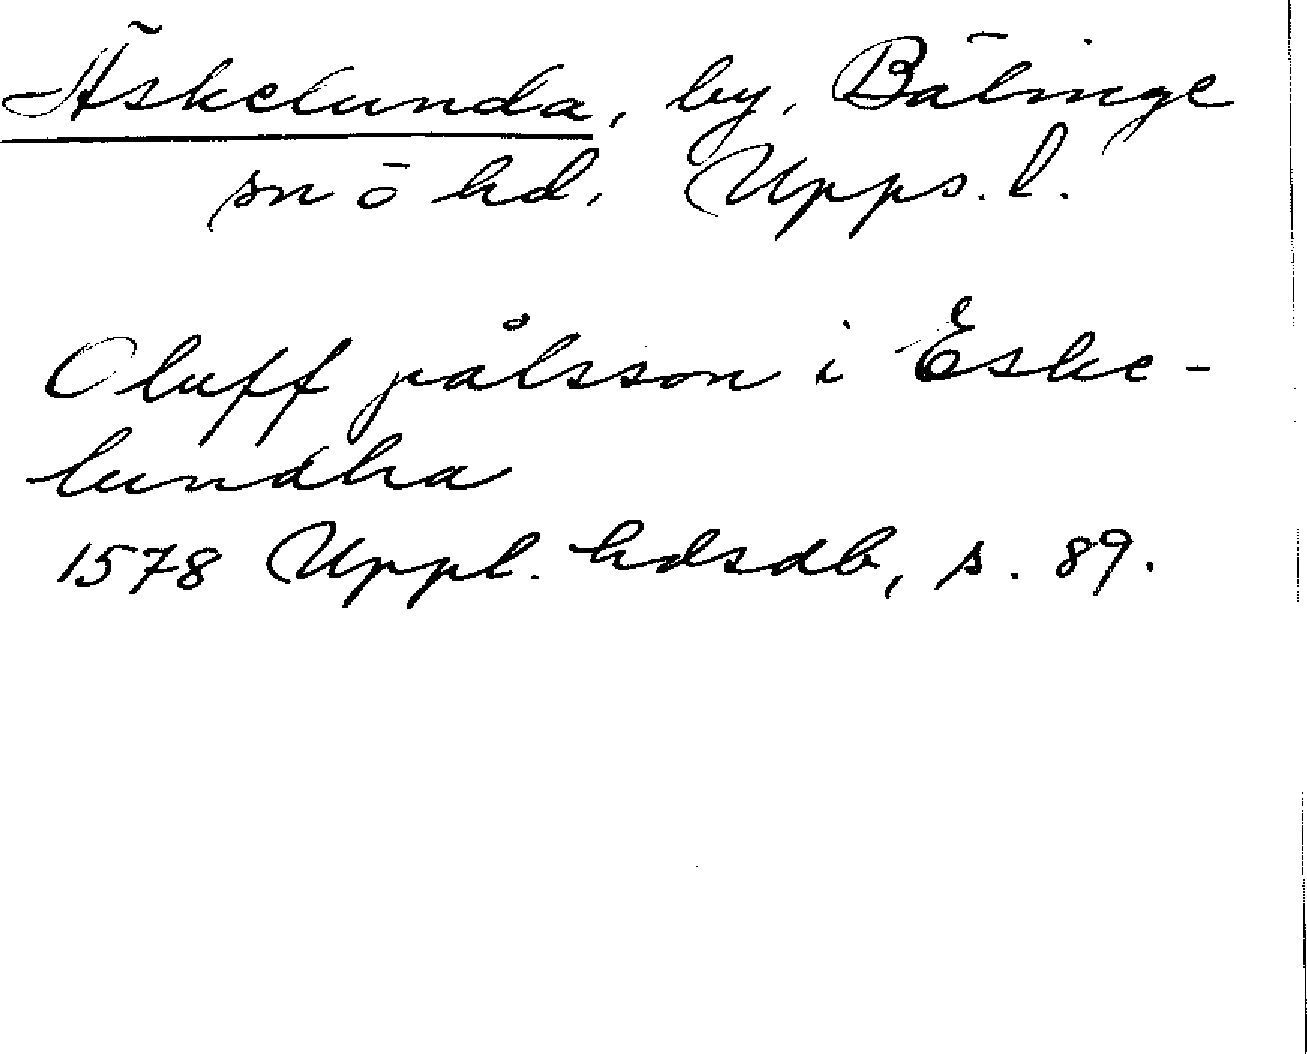 Äskelunda, by, Bälinge
sn o hd. Upps. l.
Oluff pålsson i Eske-
lundha
1578 Uppl. hdsdb, s. 89.